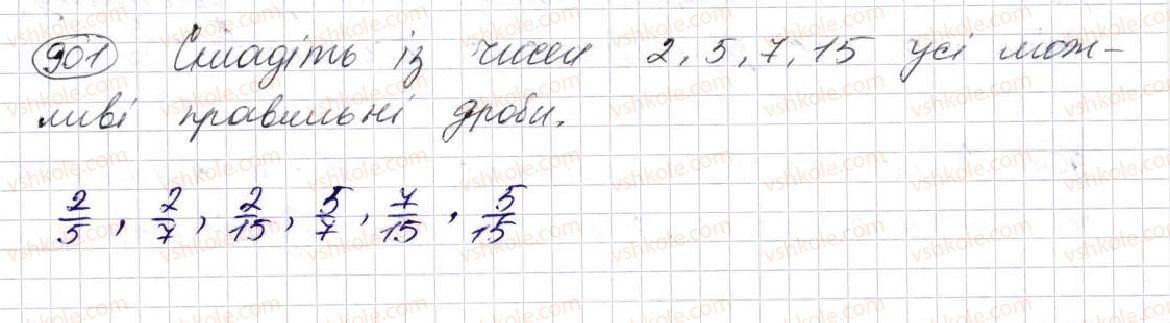 901 Складіть із чисел 2, 5, 7, 15 усі мож-
ливі правильні дроби.
2/5, 2/7, 2/15, 5/7, 7/15, 5/15